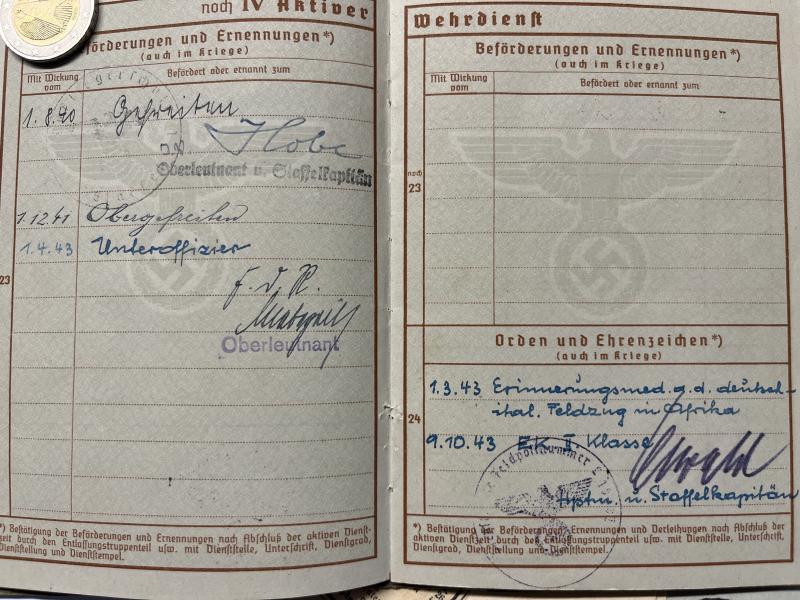 noch IV Aktiver
förderungen und Ernennungen*)
(auch im Kriege)
Mit Wirkung vom
Befördert oder ernannt zum
1.8.40 Gefreiten
Oberleutnant u. Staffelkapitän
1.12.41 Obergefreiten
1.4.43 Unteroffizier
23
F. d. R.
Oberleutnant
*) Bestätigung der Beförderungen und Ernennungen nach Abschluß der aktiven Dienst-
zeit durch den Entlassungstruppenteil usw. mit Dienststelle, Unterschrift, Dienstgrad,
Dienststellung und Dienststempel.
Wehrdienst
Beförderungen und Ernennungen*)
(auch im Kriege)
Mit Wirkung vom
Befördert oder ernannt zum
noch
23
Orden und Ehrenzeichen*)
(auch im Kriege)
1.3.43 Erinnerungsmed. a. d. deutsch-
ital. Feldzug in Afrika
24
9.10.43 EK II Klasse
Feldpostnummer
Hptm. u. Staffelkapitän
*) Bestätigung der Beförderungen, Ernennungen und Verleihungen nach Abschluß der
aktiven Dienstzeit durch den Entlassungstruppenteil usw. mit Dienststelle, Unterschrift,
Dienstgrad, Dienststellung und Dienststempel.